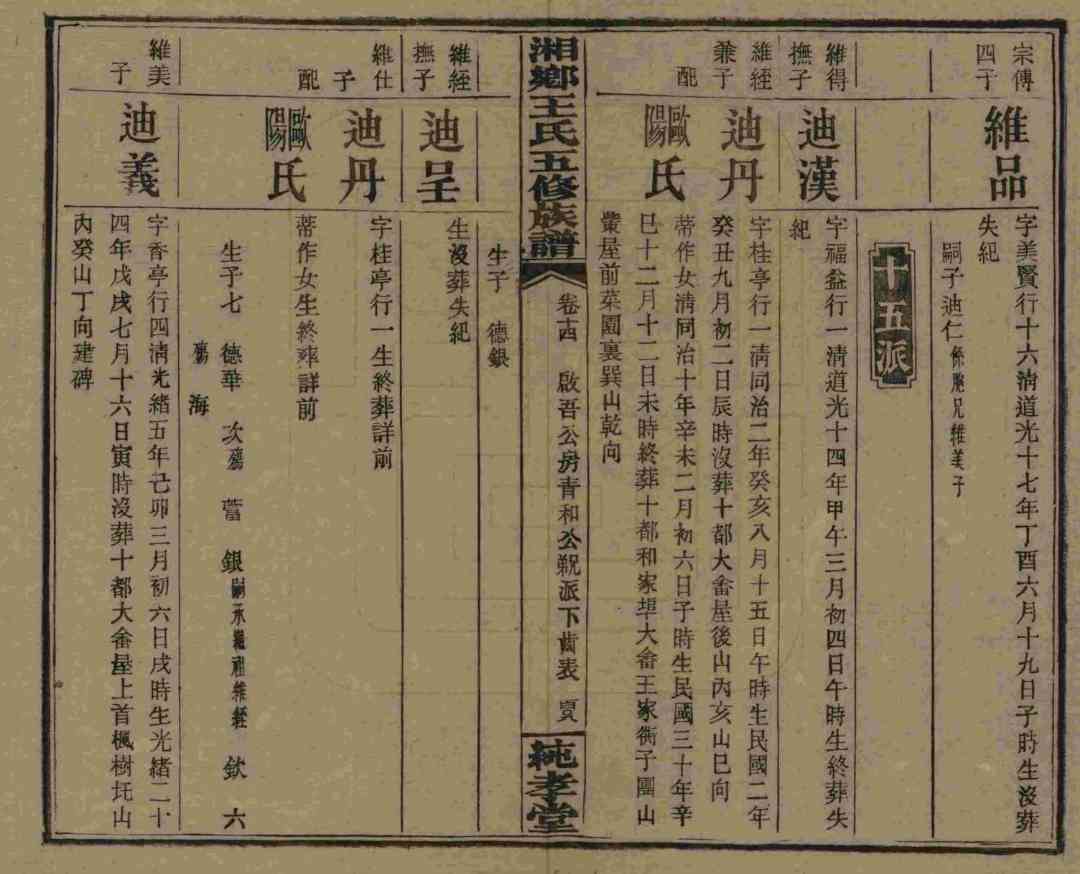 宗傳
四子
維品
字美賢行十六淸道光十七年丁酉六月十九日子時生沒葬
失紀
嗣子迪仁係胞兄維美子
十五派
維得
撫子
迪漢
字福益行一淸道光十四年甲午三月初四日午時生終葬失
紀
維經
兼子
迪丹
字桂亭行一淸同治二年癸亥八月十五日午時生民國二年
癸丑九月初二日辰時沒葬十都大畬屋後山丙亥山巳向
配
歐陽氏
蒂作女淸同治十年辛未二月初六日子時生民國三十年辛
巳十二月十二日未時終葬十都和家埠大畬王家衝子團山
黌屋前菜園裏巽山乾向
湘鄉王氏五修族譜
卷十四
啟吾公房青和公派下齒表
純孝堂
生子 德銀
維經
撫子
迪呈
生沒葬失紀
維仕
子
迪丹
字桂亭行一生終葬詳前
配
歐陽氏
蒂作女生終葬詳前
生子七 德華 次殤 萱 銀嗣承繼祖維經 欽 六
殤 海
維美
子
迪義
字香亭行四淸光緒五年己卯三月初六日戌時生光緒二十
四年戊戌七月十六日寅時沒葬十都大畬屋上首楓樹托山
內癸山丁向建碑